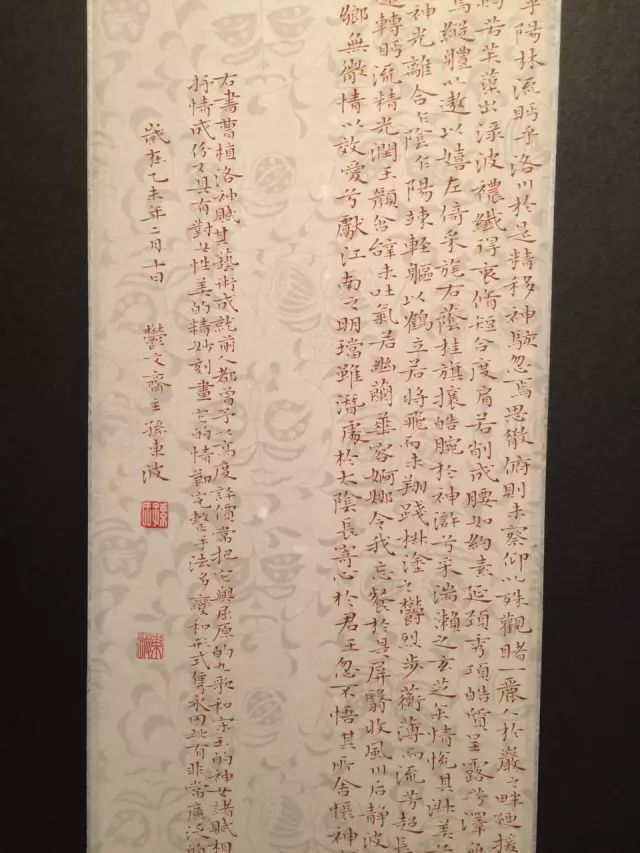 乎陽林流眄乎洛川於是精移神駭忽焉思散俯則未察仰以殊觀睹一麗人於巖之畔廼援
灼若芙蕖出淥波穠纖得衷脩短合度肩若削成腰如約素延頸秀項皓質呈露芳澤無
焉縱體以遨以嬉左倚采旄右蔭桂旗攘皓腕於神滸兮采湍瀨之玄芝余情悅其淑美兮
神光離合乍陰乍陽竦輕軀以鶴立若將飛而未翔踐椒塗之鬱烈步蘅薄而流芳超長
轉眄流精光潤玉顏含辭未吐氣若幽蘭華容婀娜令我忘餐於是屏翳收風川后靜波
鄉無微情以效愛兮獻江南之明璫雖潛處於太陰長寄心於君王忽不悟其所舍悵神
右書曹植洛神賦其藝術成就前人都曾予以高度評價常把它與屈原的九歌和宋玉的神女諸賦相
抒情成份又具有對女性美的精妙刻畫它的情節完整手法多變和形式雋永因此有非常廣泛的
歲在乙未年二月十日 鬱文齋主孫東波